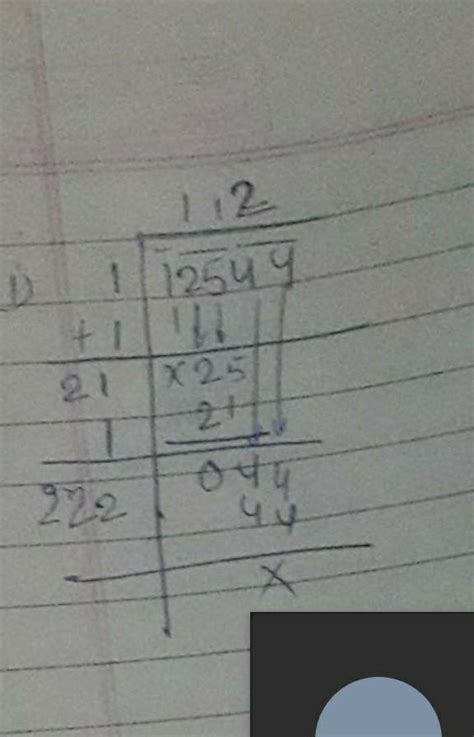 112
1) 1 12544
+1 1
21 x25
1 21
222 044
44
x